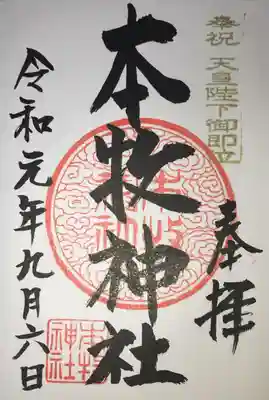 奉祝 天皇陛下御即位
奉拝
本牧神社
令和元年九月六日
本牧
神社